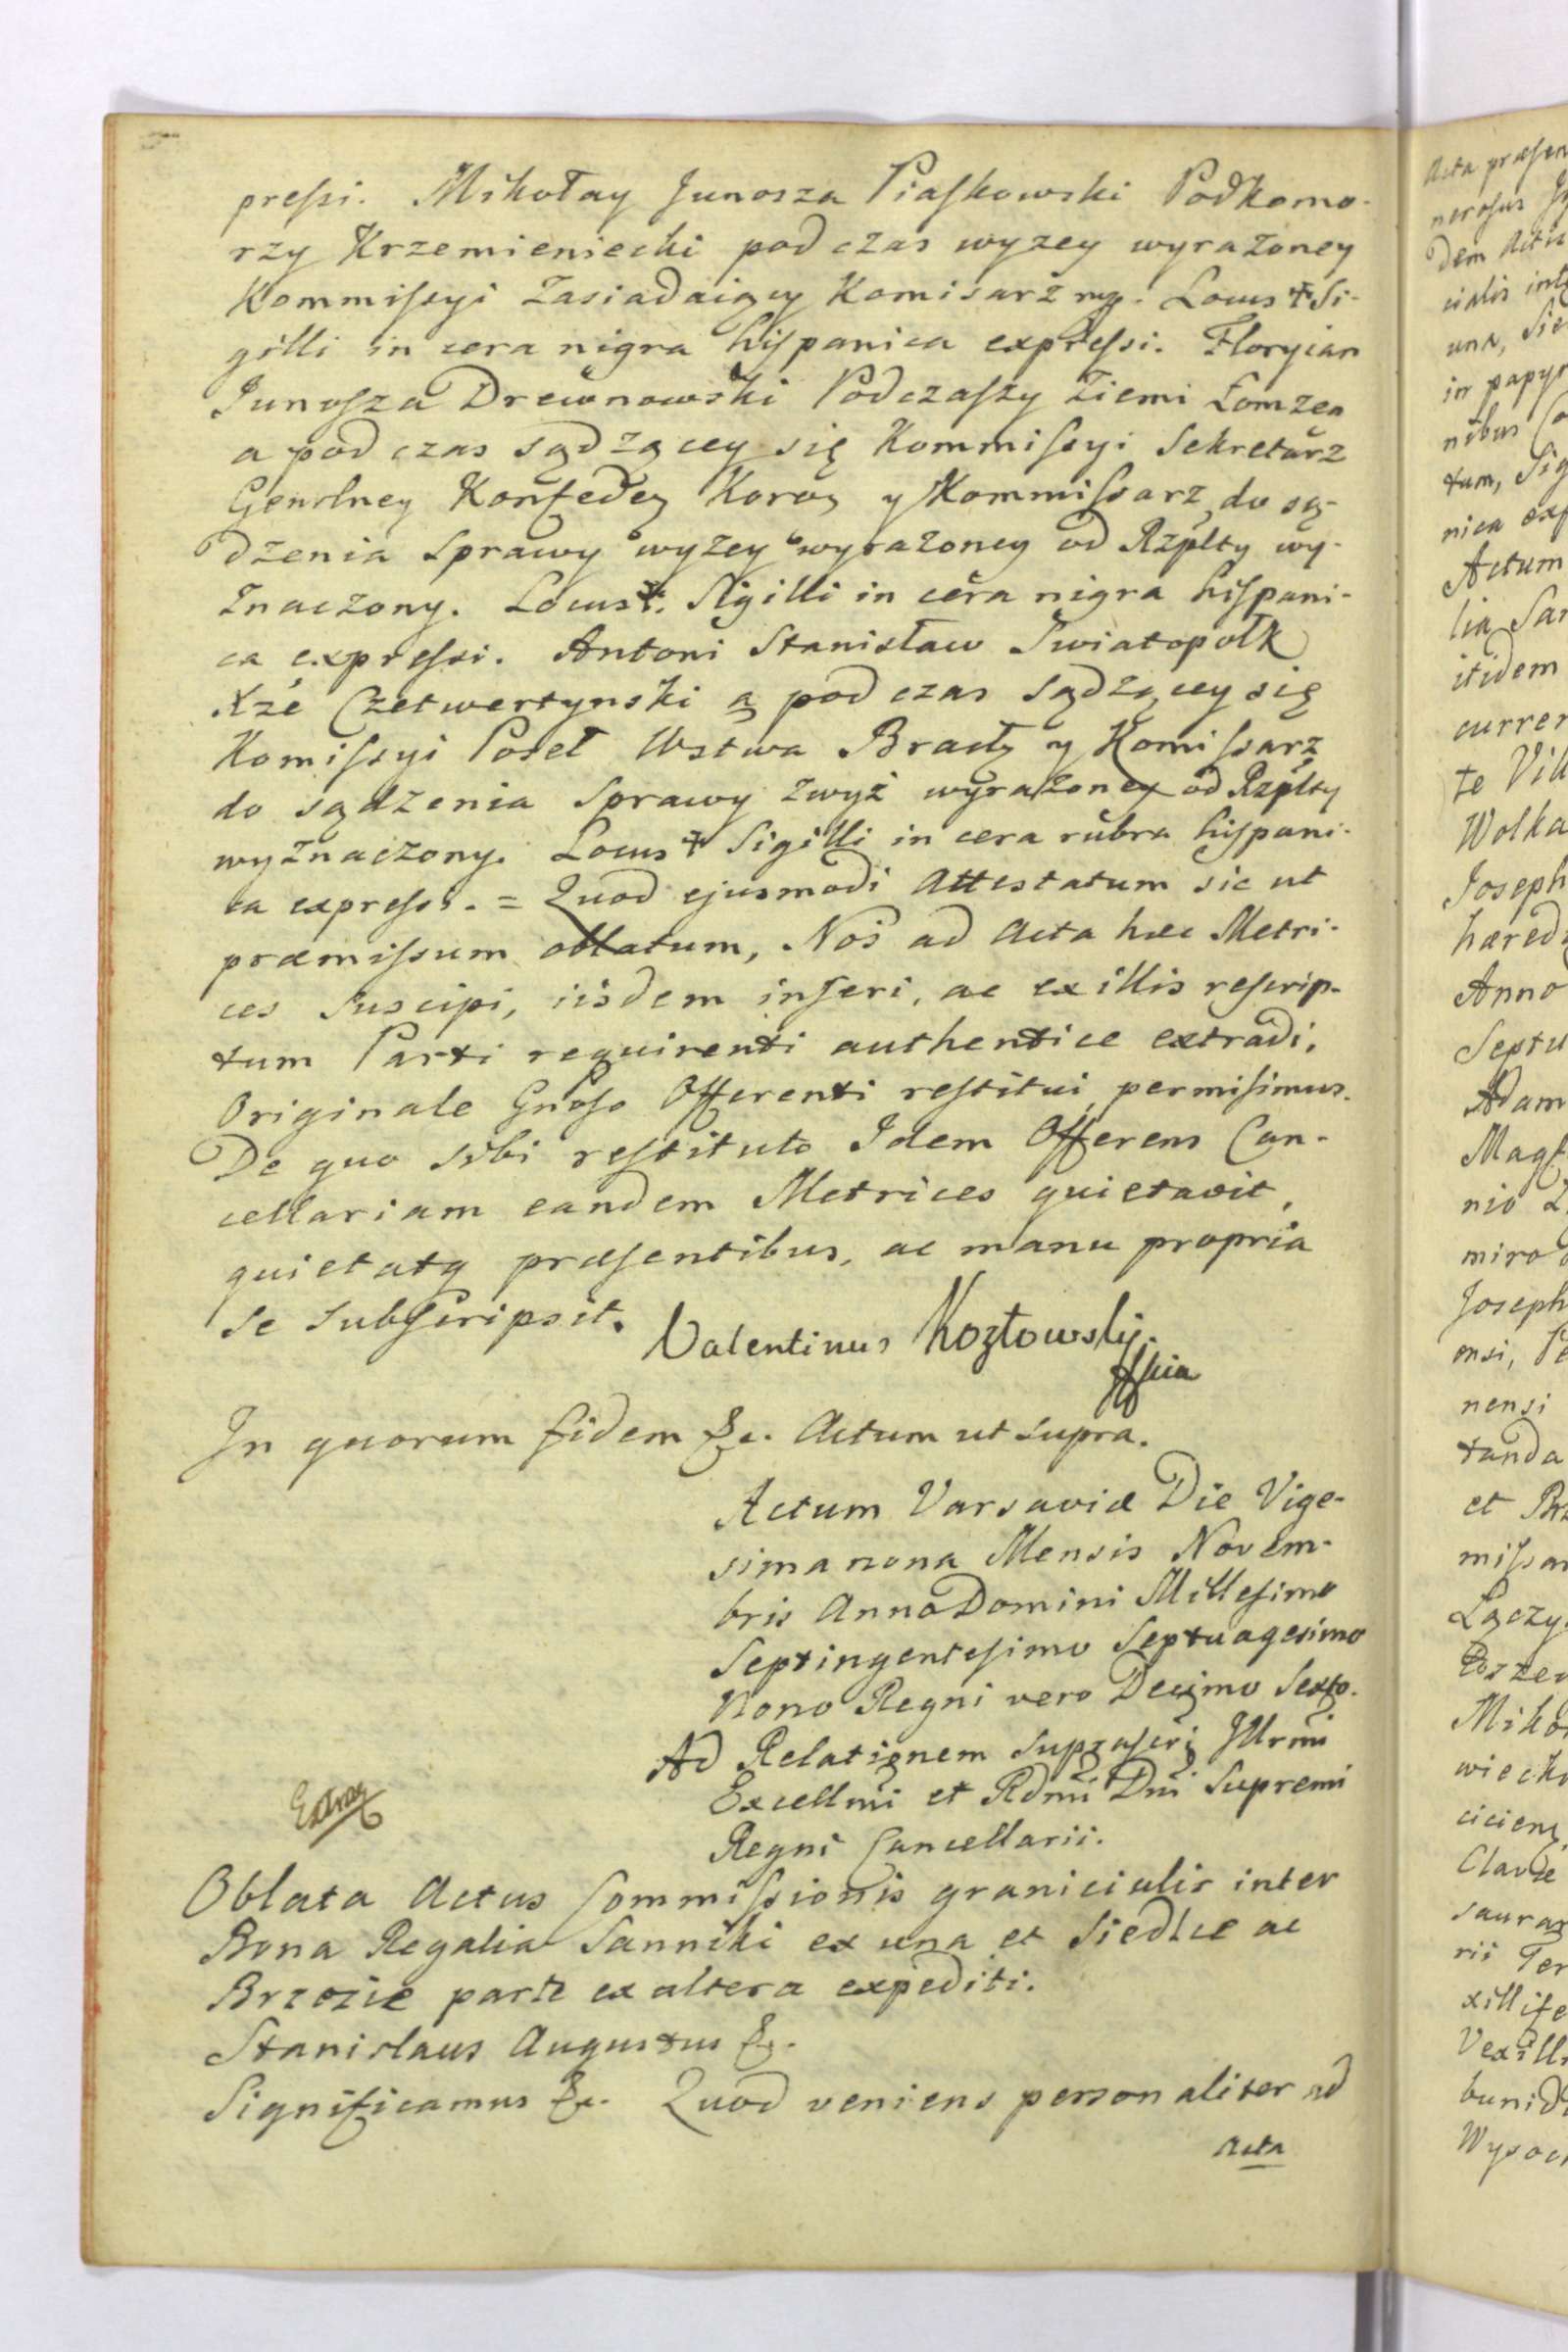 preſsi. Mikołay Junosza Piaſkowski Podkomo-
rzy Krzemieniecki pod czas wyzey wyrażoney
Kommiſsyi Zasiadaiący Komisarz mp. Locus + Si-
gilli in cera nigra hiſpanica expreſsi. Florycian
Junoſza Drewnowski Podczaſzy Ziemi Łomżen
a pod czas sądzącey się Kommiſsyi Sekretarz
Genrlney Konfedey Korony y Kommiſsarz do są-
dzenia Sprawy wyzey wyrażoney od Rzplty wy-
znaczony. Locus +. Sigilli in cera nigra hiſpani-
ca expreſsi. Antoni Stanisław Swiatopołk
Xże Czetwertynski a pod czas sądzącey się
Komiſsyi Poseł Wstwa Bracły y Komiſsarz
do sądzenia Sprawy zwyż wyrażoney od Rzplty
wyznaczony. Locus + Sigilli in cera rubra hiſpani-
ca expreſsi. = Quod ejusmodi Attestatum sic ut
præmiſsum oblatum, Nos ad Acta hæc Metri-
ces Suscipi, iisdem inſeri, ac ex illis reſcrip-
tum Parti requirenti authentice extradi,
Originale Gnoſo Offerenti reſtitui permiſimus.
De quo sibi reſtituto Idem Offerens Can-
cellariam eandem Metrices quietavit,
quietatq præſentibus, ac manu propria
se subſcripsit. Valentinus Kozłowskj.
In quorum fidem &c. Actum ut supra.
Actum Varsaviæ Die Vige-
sima nona Mensis Novem-
bris Anno Domini Milleſimo
Septingenteſimo Septuagesimo
Nono Regni vero Decimo Sexto.
Ad Relationem supraſcri Jllrmi
Excellmi et Rdmi Dni Supremi
Regni Cancellarii.
Oblata Actus Commiſsionis granicialis inter
Bona Regalia Sanniki ex una et Siedlce ac
Brzozie parte ex altera expediti.
Stanislaus Augustus &c.
Significamus &c. Quod veniens personaliter ad
Acta
Acta præſen
neroſus
dem Actu
cialis int
una, Sie
in papyr
nibus Co
tum, Sig
nica exp
Actum
lia San
itidem
curren
te Vill
Wolka
Joseph
hæred
Anno
Septu
Adam
Magf
nio
miro
Joseph
ensi,
nensi
tanda
et
miſsar
Łączy

Miko
wiecki

Clavde
saurar
rii Ter
xillife
Vexilli
bunid
Wysoc